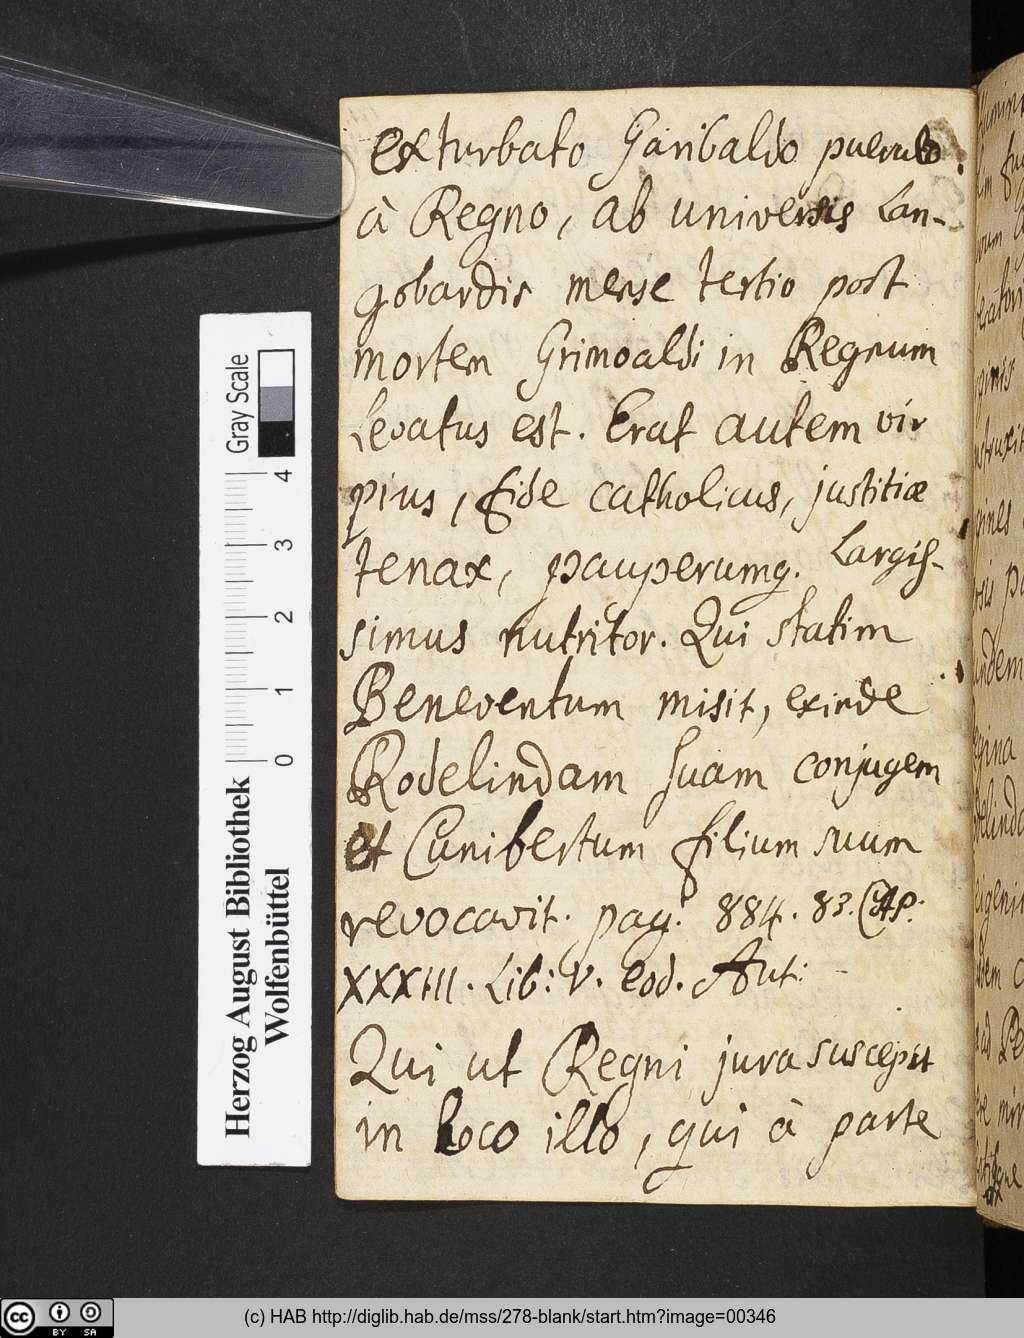 exturbato Garibaldo puerulo
à Regno, ab universis Lan-
gobardis mense tertio post
mortem Grimoaldi in Regnum
Levatus est. Erat autem vir
pius, fide catholicus, justitiæ
tenax, pauperumq. Largis-
simus nutritor. Qui statim
Beneventum misit, exinde
Rodelindam suam conjugem
et Cunibertum filium suum
revocavit. pag. 884. 83. Cap:
XXXIII. Lib: V. eod. Aut:
Qui ut Regni jura suscepit
in loco illo, qui à parte
Gray Scale
0 1 2 3 4
Herzog August Bibliothek
Wolfenbüttel
cc BY SA
(c) HAB http://diglib.hab.de/mss/278-blank/start.htm?image=00346